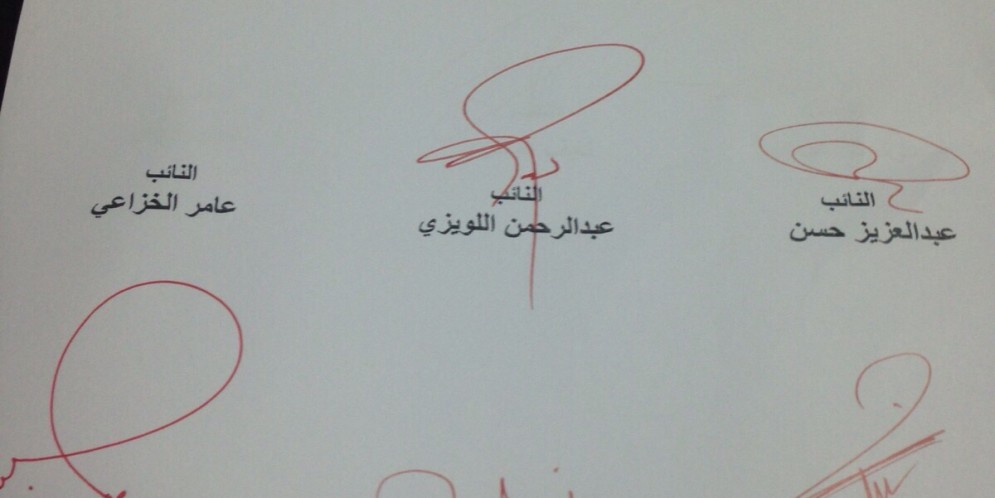 النائب
عبدالعزيز حسن
النائب
عبدالرحمن اللويزي
النائب
عامر الخزاعي